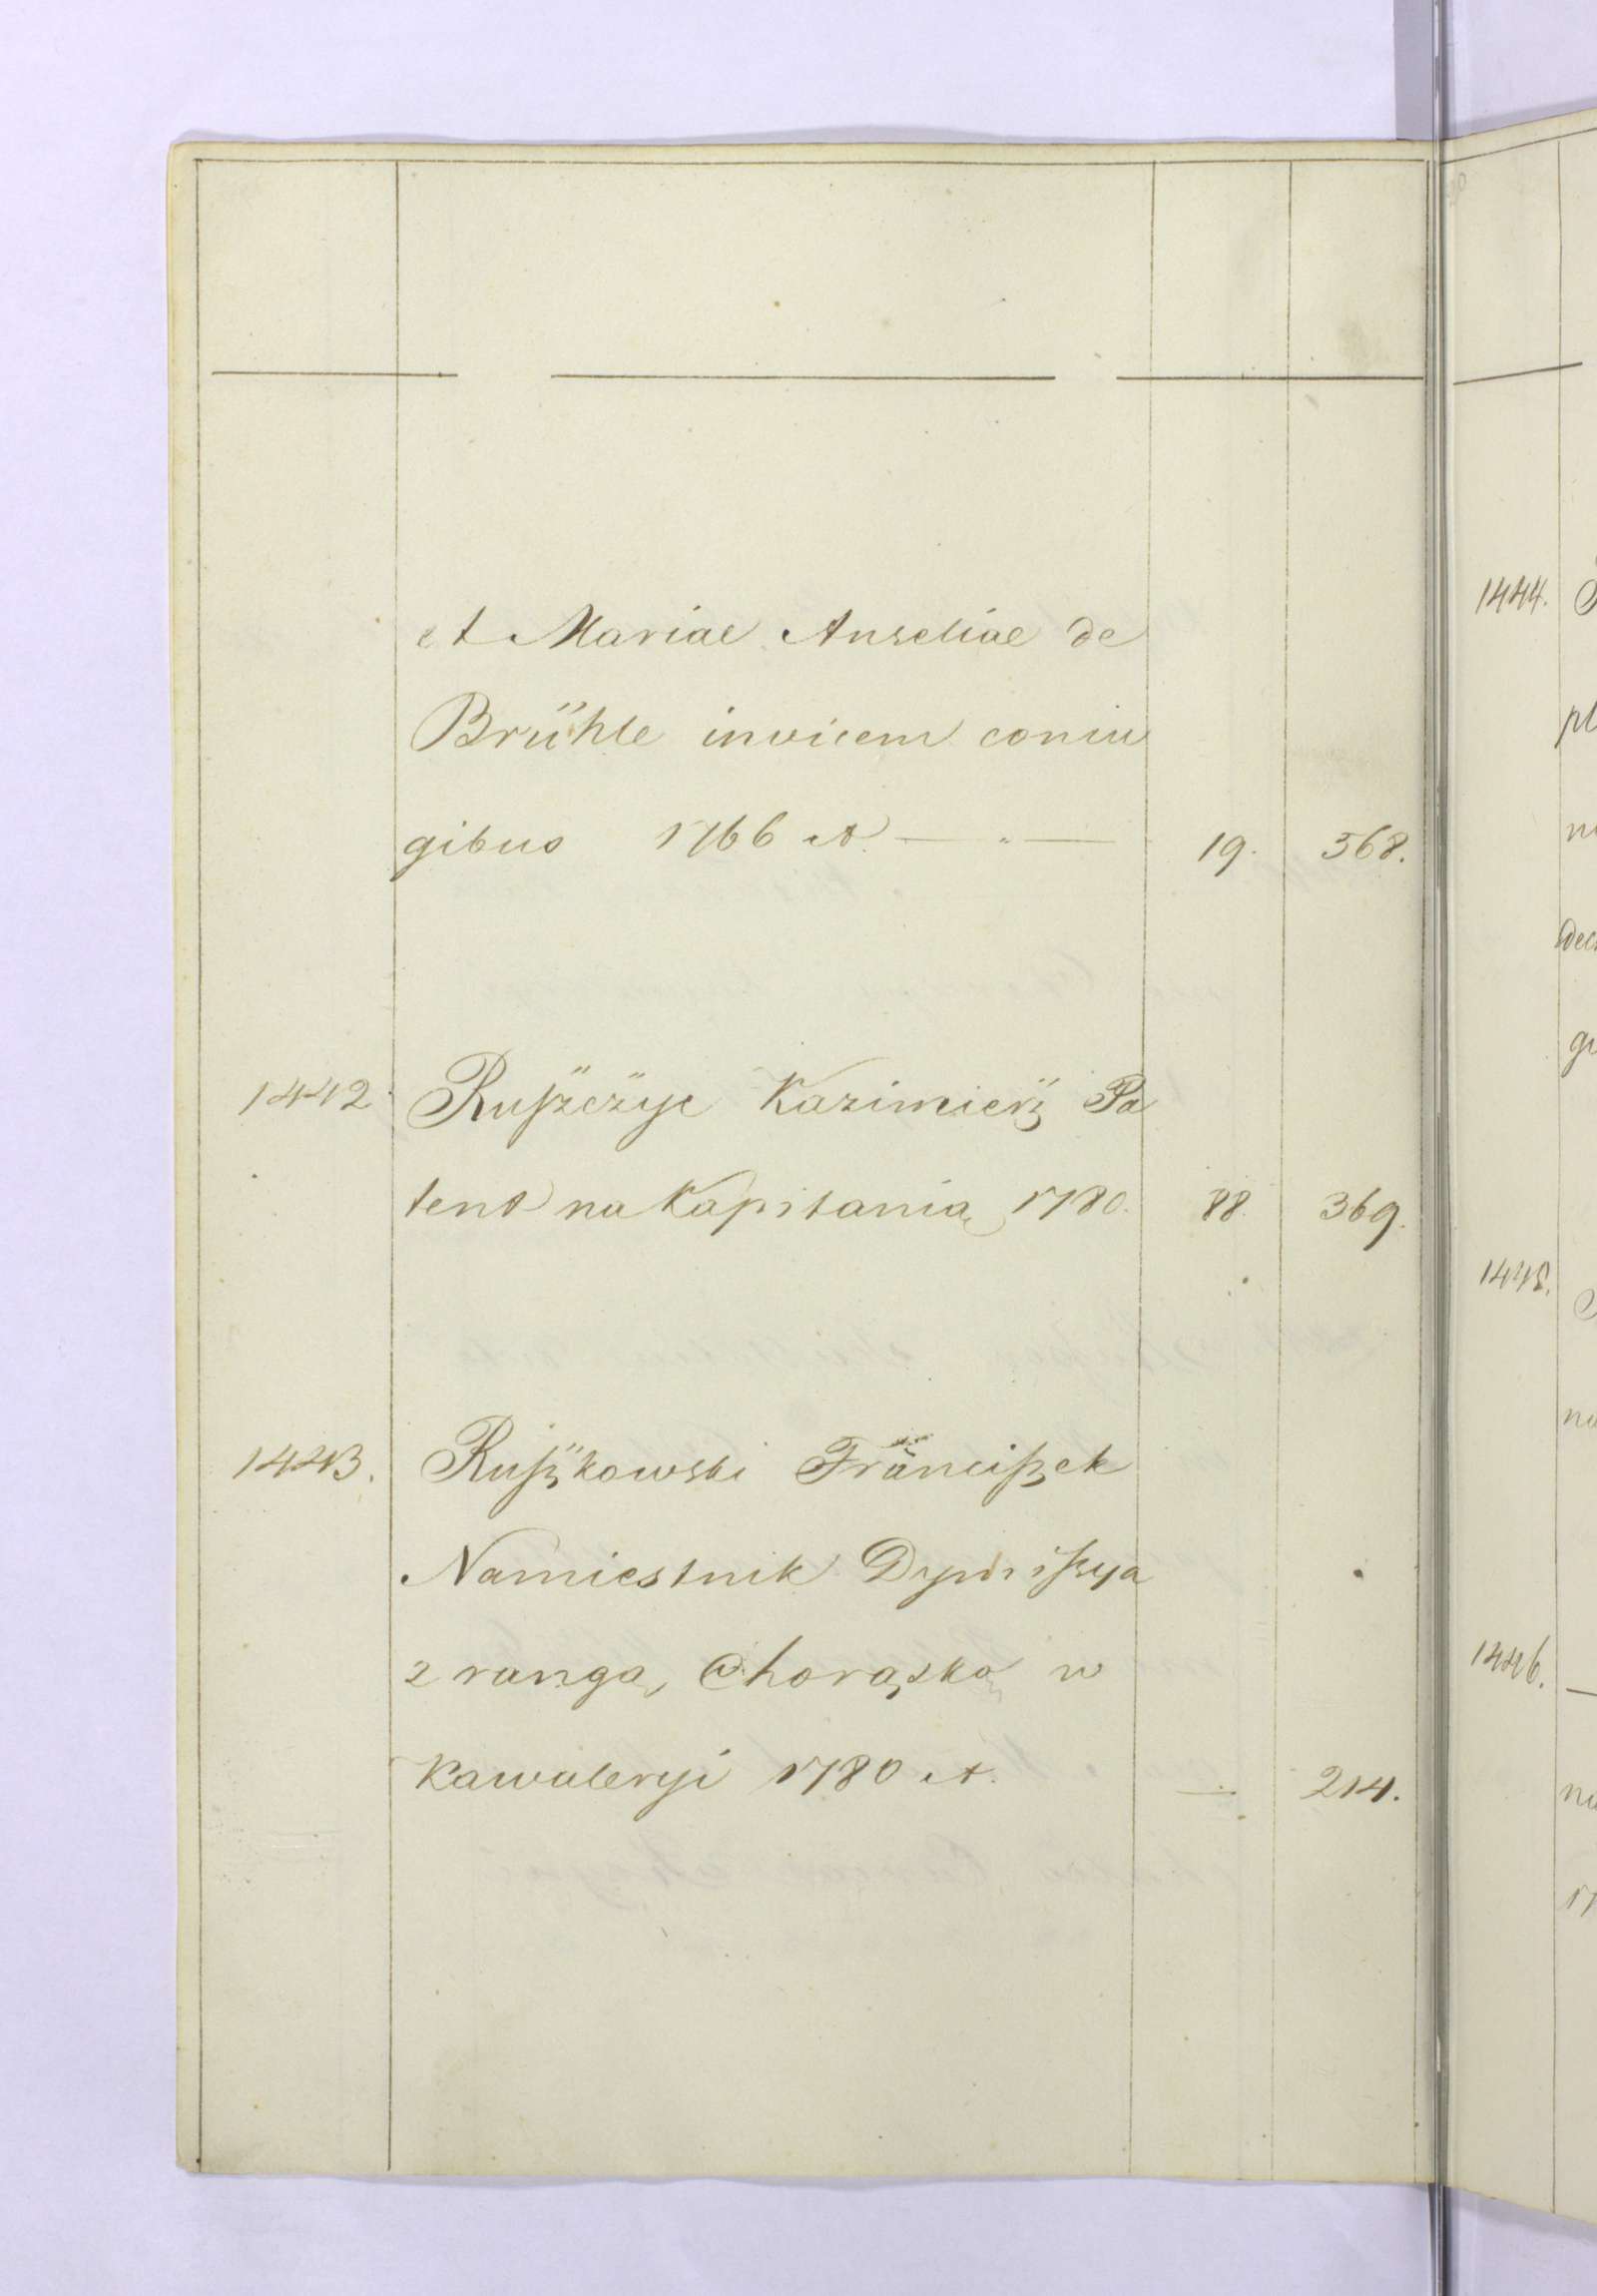 et Mariae Anseliae de
Brühle invicem coniu
gibus 1766 A. — " — 19. 368.
1442 Ruszczyc Kazimierz Pa
tent na Kapitanią 1780. 88. 369.
1443. Ruszkowski Franciszek
Namiestnik Dymissya
z rangą Chorąską w
Kawaleryi 1780 A. — 214.
1444.
pl
dec
1445.
1446.